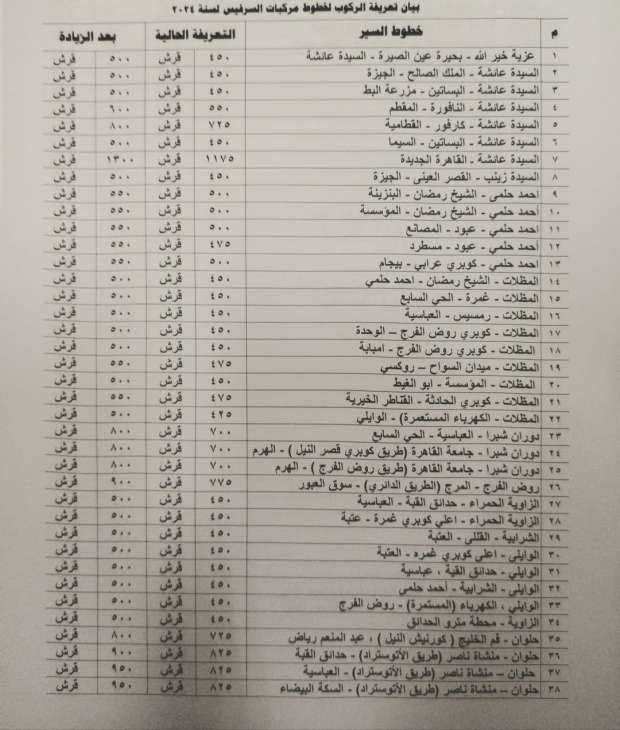 بيان تعريفة الركوب لخطوط مركبات السرفيس لسنة ٢٠٢٤
م خطوط السير التعريفة الحالية بعد الزيادة
١ عزبة خير الله - بحيرة عين الصيرة - السيدة عائشة ٤٥٠ قرش ٥٠٠ قرش
٢ السيدة عائشة - الملك الصالح - الجيزة ٤٥٠ قرش ٥٠٠ قرش
٣ السيدة عائشة - البساتين - مزرعة البط ٤٥٠ قرش ٥٠٠ قرش
٤ السيدة عائشة - النافورة - المقطم ٥٥٠ قرش ٦٠٠ قرش
٥ السيدة عائشة - كارفور - القطامية ٧٢٥ قرش ٨٠٠ قرش
٦ السيدة عائشة - البساتين - السيما ٤٥٠ قرش ٥٠٠ قرش
٧ السيدة عائشة - القاهرة الجديدة ١١٧٥ قرش ١٣٠٠ قرش
٨ السيدة زينب - القصر العينى - الجيزة ٤٥٠ قرش ٥٠٠ قرش
٩ احمد حلمى - الشيخ رمضان - البنزينة ٥٠٠ قرش ٥٥٠ قرش
١٠ أحمد حلمي - الشيخ رمضان - المؤسسة ٥٠٠ قرش ٥٥٠ قرش
١١ أحمد حلمي - عبود - المصانع ٥٠٠ قرش ٥٥٠ قرش
١٢ أحمد حلمي - عبود - مسطرد ٤٧٥ قرش ٥٥٠ قرش
١٣ احمد حلمي - كوبري عرابي - بيجام ٥٠٠ قرش ٥٥٠ قرش
١٤ المظلات - الشيخ رمضان - احمد حلمي ٤٥٠ قرش ٥٠٠ قرش
١٥ المظلات - غمرة - الحي السابع ٤٥٠ قرش ٥٠٠ قرش
١٦ المظلات - رمسيس - العباسية ٤٥٠ قرش ٥٠٠ قرش
١٧ المظلات - كوبري روض الفرج – الوحدة ٤٥٠ قرش ٥٠٠ قرش
١٨ المظلات - كوبري روض الفرج - امبابة ٤٥٠ قرش ٥٠٠ قرش
١٩ المظلات - ميدان السواح – روكسي ٤٧٥ قرش ٥٥٠ قرش
٢٠ المظلات - المؤسسة - ابو الغيط ٤٥٠ قرش ٥٠٠ قرش
٢١ المظلات - كوبري الحادثة - القناطر الخيرية ٤٧٥ قرش ٥٥٠ قرش
٢٢ المظلات - الكهرباء المستعمرة) - الوايلي ٤٢٥ قرش ٥٠٠ قرش
٢٣ دوران شبرا - العباسية - الحي السابع ٧٠٠ قرش ٨٠٠ قرش
٢٤ دوران شبرا - جامعة القاهرة (طريق كوبري قصر النيل ) - الهرم ٧٠٠ قرش ٨٠٠ قرش
٢٥ دوران شبرا - جامعة القاهرة (طريق روض الفرج ) - الهرم ٧٠٠ قرش ٨٠٠ قرش
٢٦ روض الفرج - المرج (الطريق الدائري) - سوق العبور ٧٧٥ قرش ٩٠٠ قرش
٢٧ الزاوية الحمراء - حدائق القبة - العباسية ٤٥٠ قرش ٥٠٠ قرش
٢٨ الزاوية الحمراء - اعلي كوبري غمرة - عتبة ٤٥٠ قرش ٥٠٠ قرش
٢٩ الشرابية - القللى - العتبة ٤٥٠ قرش ٥٠٠ قرش
٣٠ الوايلي - اعلى كوبري غمره - العتبة ٤٥٠ قرش ٥٠٠ قرش
٣١ الوايلي - حدائق القبة ، عباسية ٤٥٠ قرش ٥٠٠ قرش
٣٢ الوايلي - الشرابية - أحمد حلمى ٤٥٠ قرش ٥٠٠ قرش
٣٣ الوايلي ، الكهرباء (المستمرة) - روض الفرج ٤٥٠ قرش ٥٠٠ قرش
٣٤ الزاوية - محطة مترو الحدائق ٤٥٠ قرش ٥٠٠ قرش
٣٥ حلوان - فم الخليج ( كورنيش النيل ) ، عبد المنعم رياض ٧٢٥ قرش ٨٠٠ قرش
٣٦ حلوان - منشاة ناصر (طريق الأتوستراد) - حدائق القبة ٨٢٥ قرش ٩٠٠ قرش
٣٧ حلوان – منشاة ناصر (طريق الأتوستراد) - العباسية ٨٢٥ قرش ٩٥٠ قرش
٣٨ حلوان – منشاة ناصر (طريق الأتوستراد) - السكة البيضاء ٨٢٥ قرش ٩٥٠ قرش